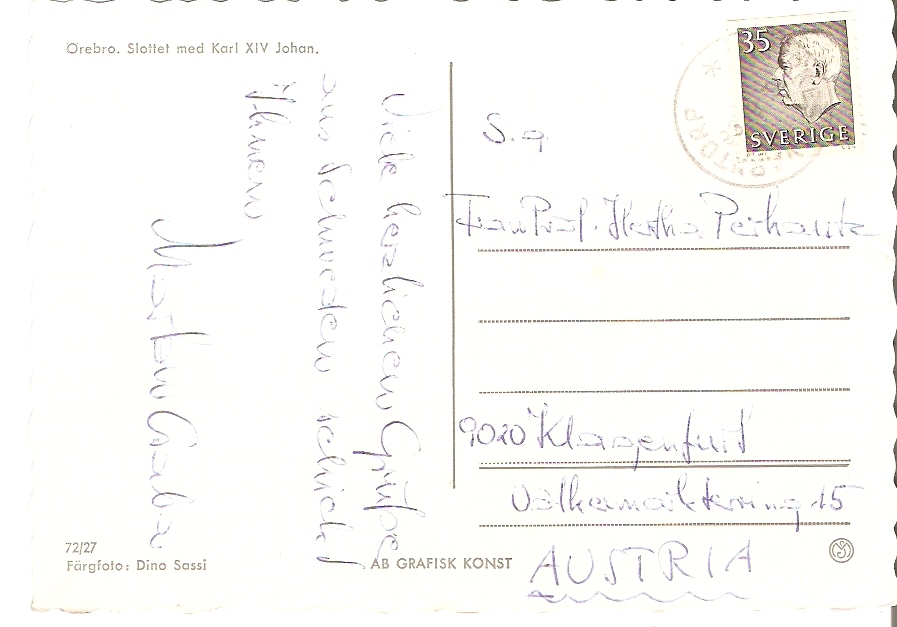 Örebro. Slottet med Karl XIV Johan.
Viele herzlichen Grüße
aus Schweden schickt
Ihnen
Martin
72/27
Färgfoto: Dino Sassi
AB GRAFISK KONST
35
SVERIGE
S. g.
Frau Prof. Hertha
9020 Klagenfurt
Völkermarkterring 15
AUSTRIA